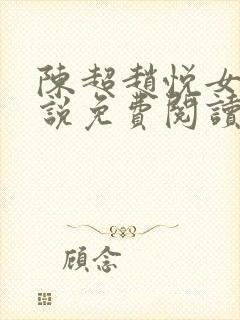 陳超趙悅女
說免費閱讀
顧念